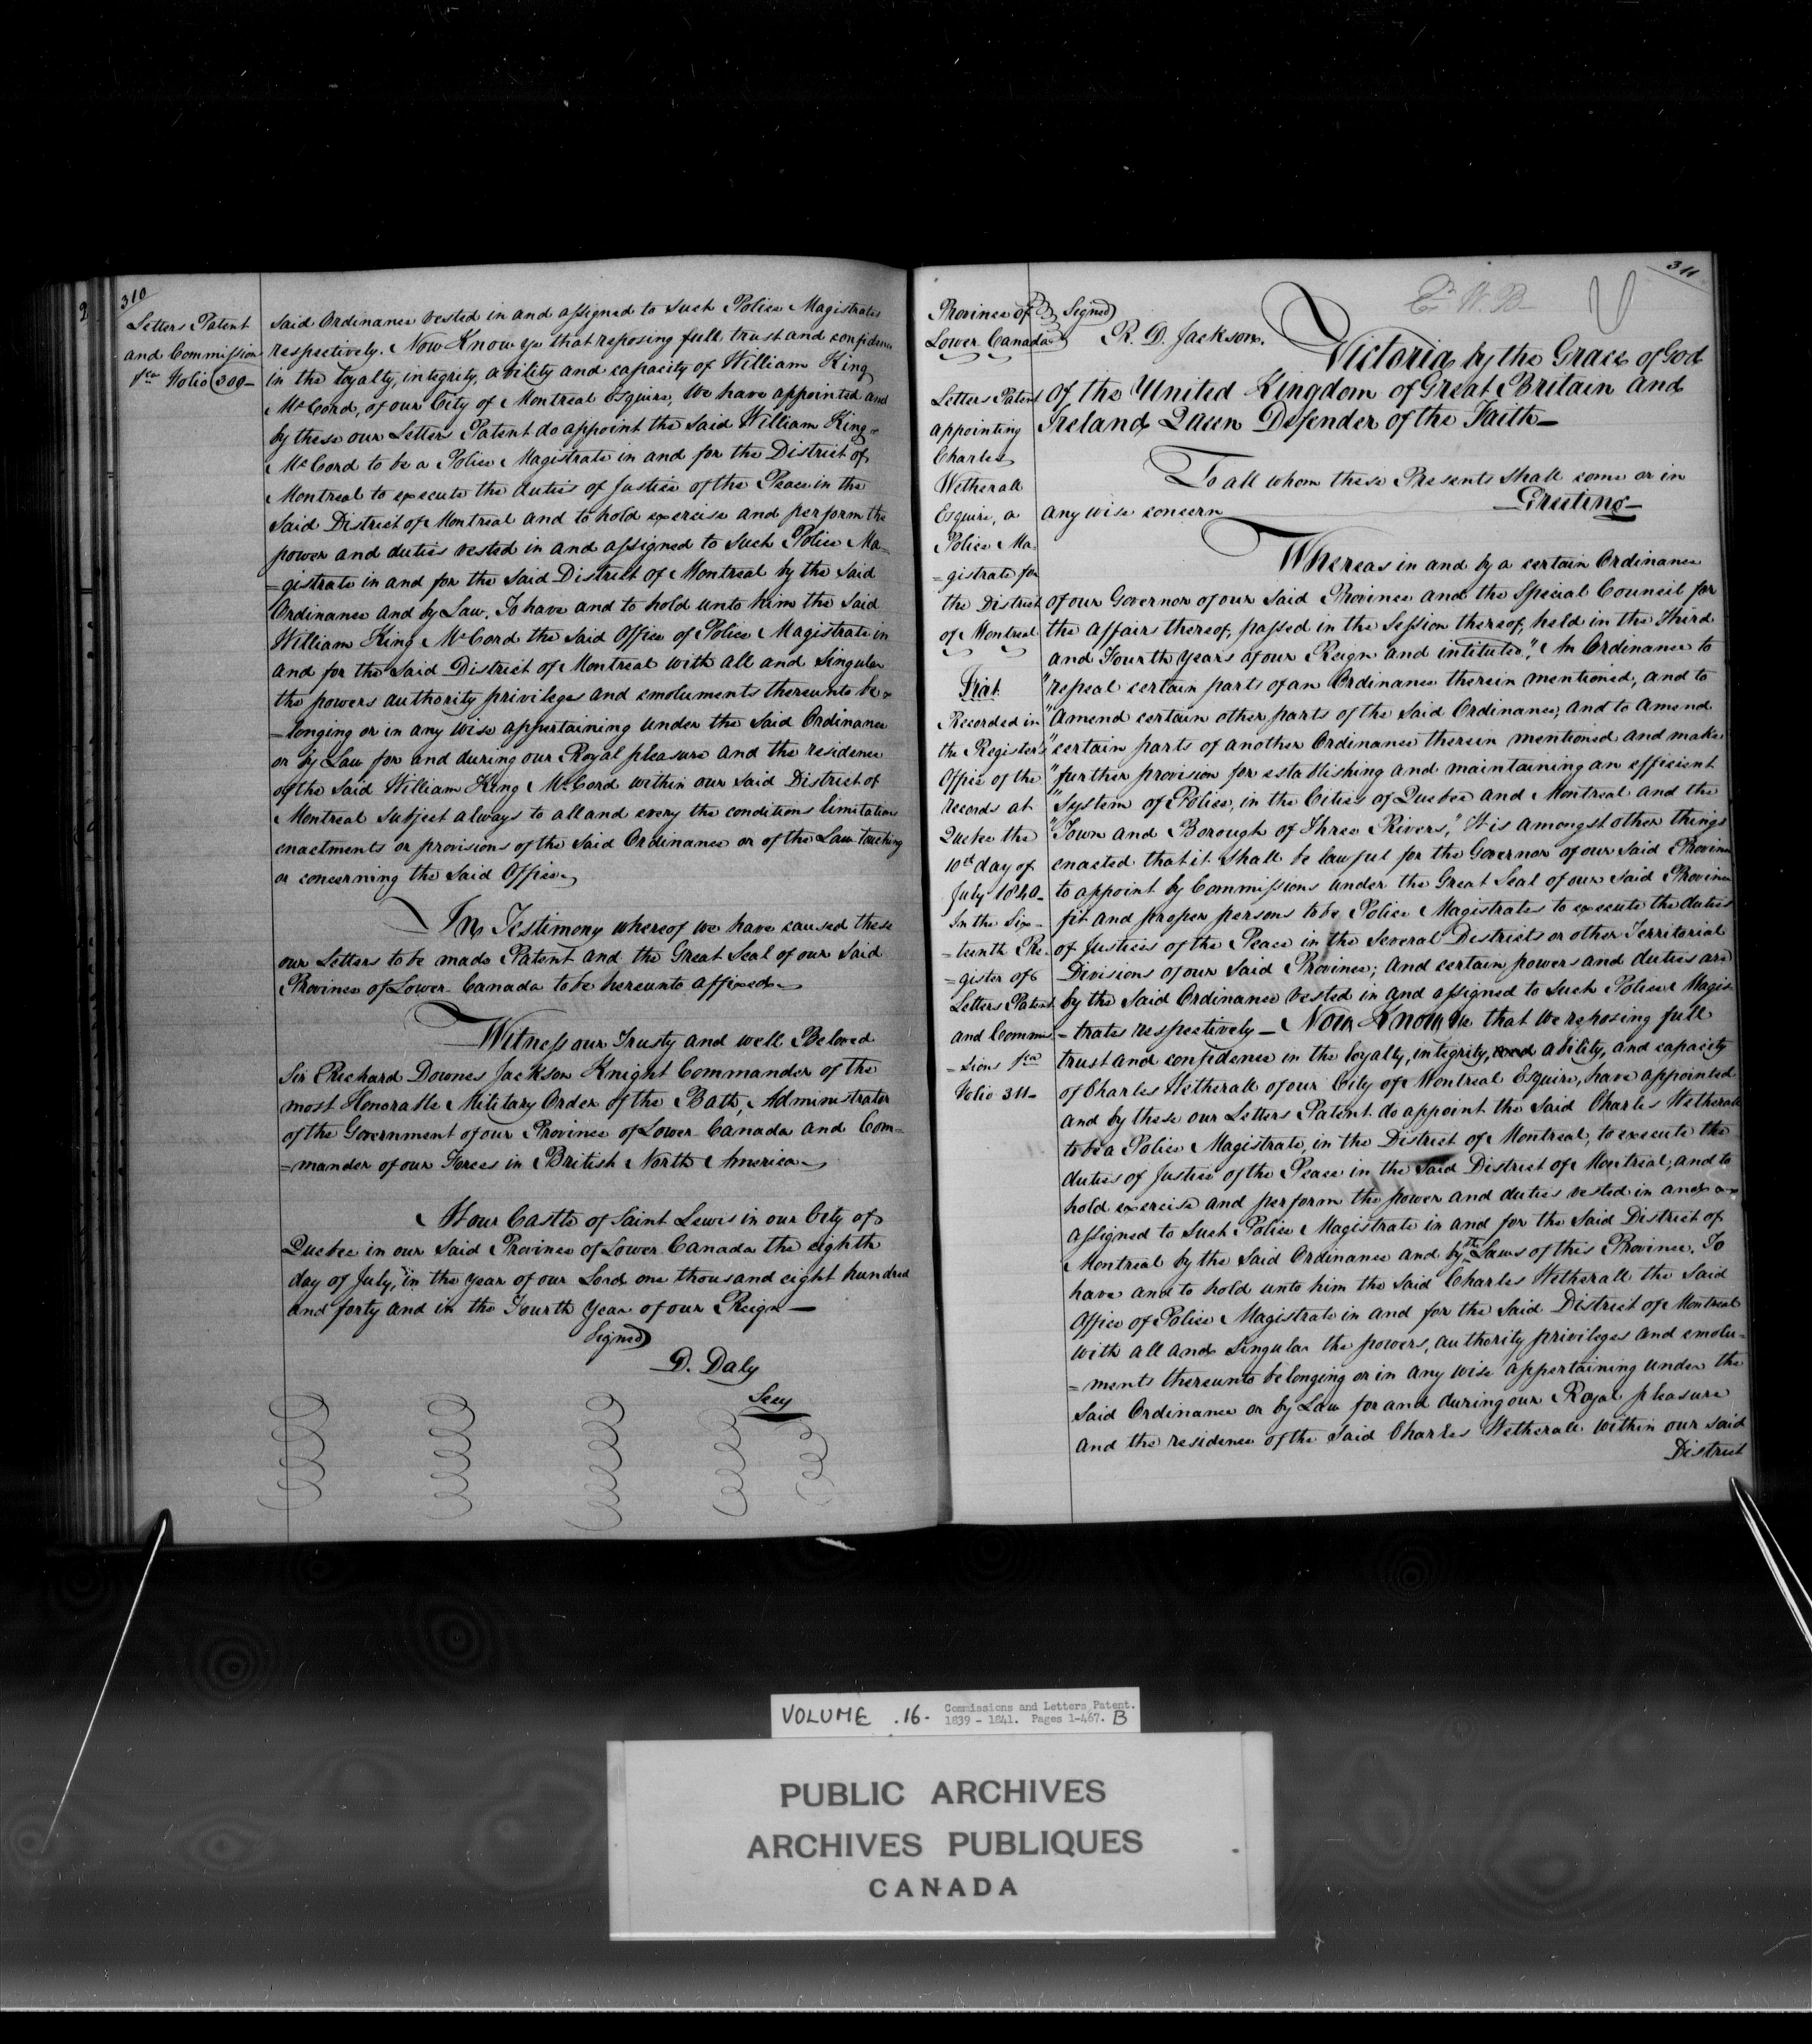 310
Letters Patent
and Commission
Folio 300-
said Ordinance vested in and assigned to such Police Magistrates
respectively. Now Know ye that reposing full trust and confidence
in the loyalty, integrity, ability and capacity of William King
McCord, of our City of Montreal Esquire, We have appointed and
by these our Letters Patent do appoint the said William King
McCord to be a Police Magistrate in and for the District of
Montreal to execute the duties of Justice of the Peace in the
said District of Montreal and to hold exercise and perform the
power and duties vested in and assigned to such Police Ma=
=gistrate in and for the said District of Montreal by the said
Ordinance and by Law. To have and to hold unto him the said
William King McCord the said Office of Police Magistrate in
and for the said District of Montreal with all and singular
the powers authority privileges and emoluments thereunto be=
=longing or in any wise appertaining under the said Ordinance
or by Law for and during our Royal pleasure and the residence
of the said William King McCord within our said District of
Montreal subject always to all and every the conditions limitations
enactments or provisions of the said Ordinance or of the Law touching
or concerning the said Office
In Testimony whereof we have caused these
our Letters to be made Patent and the Great Seal of our said
Province of Lower Canada to be hereunto affixed
Witness our Trusty and well Beloved
Sir Richard Downes Jackson Knight Commander of the
most Honorable Military Order of the Bath, Administrator
of the Government of our Province of Lower Canada and Com=
=mander of our Forces in British North America
At our Castle of Saint Lewis in our City of
Quebec in our said Province of Lower Canada the eighth
day of July, in the year of our Lord one thousand eight hundred
and forty and in the Fourth year of our Reign—
Signed
D. Daly
Secy
311
Province of
Lower Canada
Signed
R. D. Jackson.
Letters Patent
appointing
Charles
Wetherall
Esquire, a
Police Ma=
=gistrate for
the District
of Montreal
Fiat
Recorded in
the Registers
Office of the
records at
Quebec the
10th day of
July 1840-
In the Six=
=teenth Re=
=gister of
Letters Patent
and Commis
=sions
Folio 311-
Victoria by the Grace of God
of the United Kingdom of Great Britain and
Ireland Queen Defender of the Faith—
To all whom these Presents shall come or in
any wise concern Greeting—
Whereas in and by a certain Ordinance
of our Governor of our said Province and the Special Council for
the affairs thereof, passed in the Session thereof, held in the Third
and Fourth years of our Reign and intituled, "An Ordinance to
"repeal certain parts of an Ordinance therein mentioned, and to
"amend certain other parts of the said Ordinance, and to amend
"certain parts of another Ordinance therein mentioned and make
"further provision for establishing and maintaining an efficient
"System of Police, in the Cities of Quebec and Montreal and the
"Town and Borough of Three Rivers," It is amongst other things
enacted that it shall be lawful for the Governor of our said Province
to appoint by Commissions under the Great Seal of our said Province
fit and proper persons to be Police Magistrates to execute the duties
of Justices of the Peace in the several Districts or other Territorial
Divisions of our said Province; And certain powers and duties are
by the said Ordinance vested in and assigned to such Police Magis
=trates respectively— Now Know Ye that We reposing full
trust and confidence in the loyalty, integrity, ability, and capacity
of Charles Wetherall of our City of Montreal Esquire, have appointed
and by these our Letters Patent do appoint the said Charles Wetherall
to be a Police Magistrate, in the District of Montreal, to execute the
duties of Justice of the Peace in the said District of Montreal, and to
hold exercise and perform the power and duties vested in and
assigned to such Police Magistrate in and for the said District of
Montreal by the said Ordinance and by the Laws of this Province. To
have and to hold unto him the said Charles Wetherall the said
Office of Police Magistrate in and for the said District of Montreal
with all and singular the powers, authority privileges and emolu=
=ments thereunto belonging or in any wise appertaining under the
said Ordinance or by Law for and during our Royal pleasure
and the residence of the said Charles Wetherall within our said
District
VOLUME .16. Commissions and Letters Patent.
1839 - 1841. Pages 1-467. B
PUBLIC ARCHIVES
ARCHIVES PUBLIQUES
CANADA